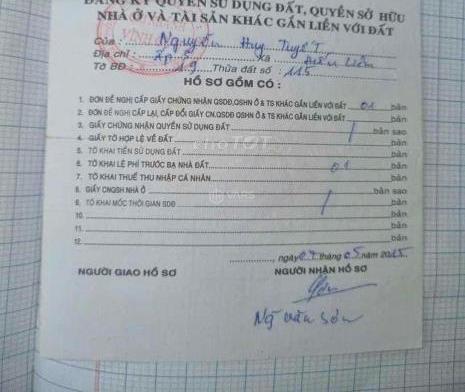 ĐĂNG KÝ QUYỀN SỬ DỤNG ĐẤT, QUYỀN SỞ HỮU
NHÀ Ở VÀ TÀI SẢN KHÁC GẮN LIỀN VỚI ĐẤT
Của : Nguyễn Huy Tuyết
Địa chỉ : ấp 5 xã
Tờ BĐ: 19 Thửa đất số : 115
HỒ SƠ GỒM CÓ :
1. ĐƠN ĐỀ NGHỊ CẤP GIẤY CHỨNG NHẬN QSDĐ,QSHN Ở & TS KHÁC GẮN LIỀN VỚI ĐẤT 01 bản
2. ĐƠN ĐỀ NGHỊ CẤP LẠI, CẤP ĐỔI GIẤY CN.QSDĐ QSHN Ở & TS KHÁC GẮN LIỀN VỚI ĐẤT bản
3. GIẤY CHỨNG NHẬN QUYỀN SỬ DỤNG ĐẤT bản sao
4. GIẤY TỜ HỢP LỆ VỀ ĐẤT bản
5. TỜ KHAI TIỀN SỬ DỤNG ĐẤT bản
6. TỜ KHAI LỆ PHÍ TRƯỚC BẠ NHÀ ĐẤT 01 bản
7. TỜ KHAI THUẾ THU NHẬP CÁ NHÂN bản
8. GIẤY CNQSH NHÀ Ở bản sao
9. TỜ KHAI MỐC THỜI GIAN SDĐ bản
10. bản
11. bản
12. bản
ngày 07 tháng 05 năm 2015
NGƯỜI GIAO HỒ SƠ NGƯỜI NHẬN HỒ SƠ
Sơn
Ng văn Sơn
VARS